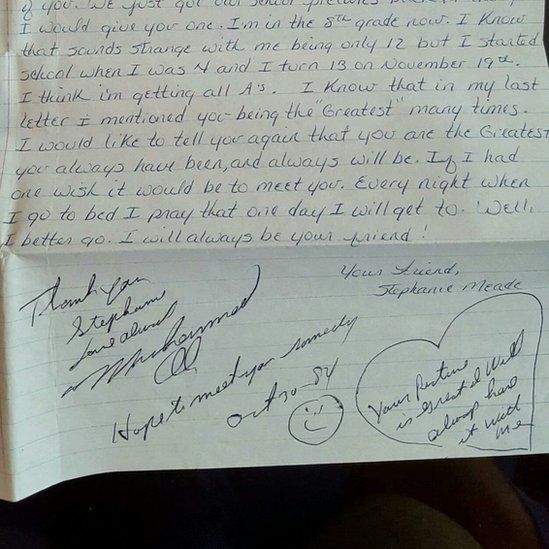 of you. We just got our school pictures
I would give you one. I'm in the 8th grade now. I Know
that sounds strange with me being only 12 but I started
school when I was 4 and I turn 13 on November 19th.
I think i'm getting all A's. I Know that in my last
letter I mentioned you being the "Greatest" many times.
I would like to tell you again that you are the Greatest
you always have been, and always will be. If I had
one wish it would be to meet you. Every night when
I go to bed I pray that one day I will get to. Well,
I better go. I will always be your friend!
Your Friend,
Stephanie Meade
Thank you
Stephanie
Love always
Muhammad
Ali
Hope to meet you someday
Oct 30-84
Your Picture
is great I will
always have
it with
me